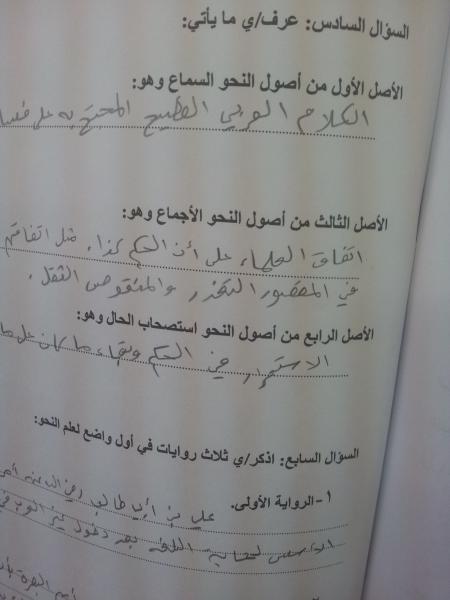 السؤال السادس: عرف/ي ما يأتي:
الأصل الأول من أصول النحو السماع وهو:
الكلام العربي الفصيح المحتج به على
الأصل الثالث من أصول النحو الأجماع وهو:
اتفاق العلماء على أن الحكم كذا. مثل اتفاقهم
في المقصور التعذر والمنقوص الثقل.
الأصل الرابع من أصول النحو استصحاب الحال وهو:
الاستمرار في الحكم وبقاء ما كان على ما
السؤال السابع: اذكر/ي ثلاث روايات في أول واضع لعلم النحو:
١-الرواية الأولى. علي بن أبي طالب رضي الله عنه
الأسس لحماية اللغة بعد دخول غير العرب في
البصرة